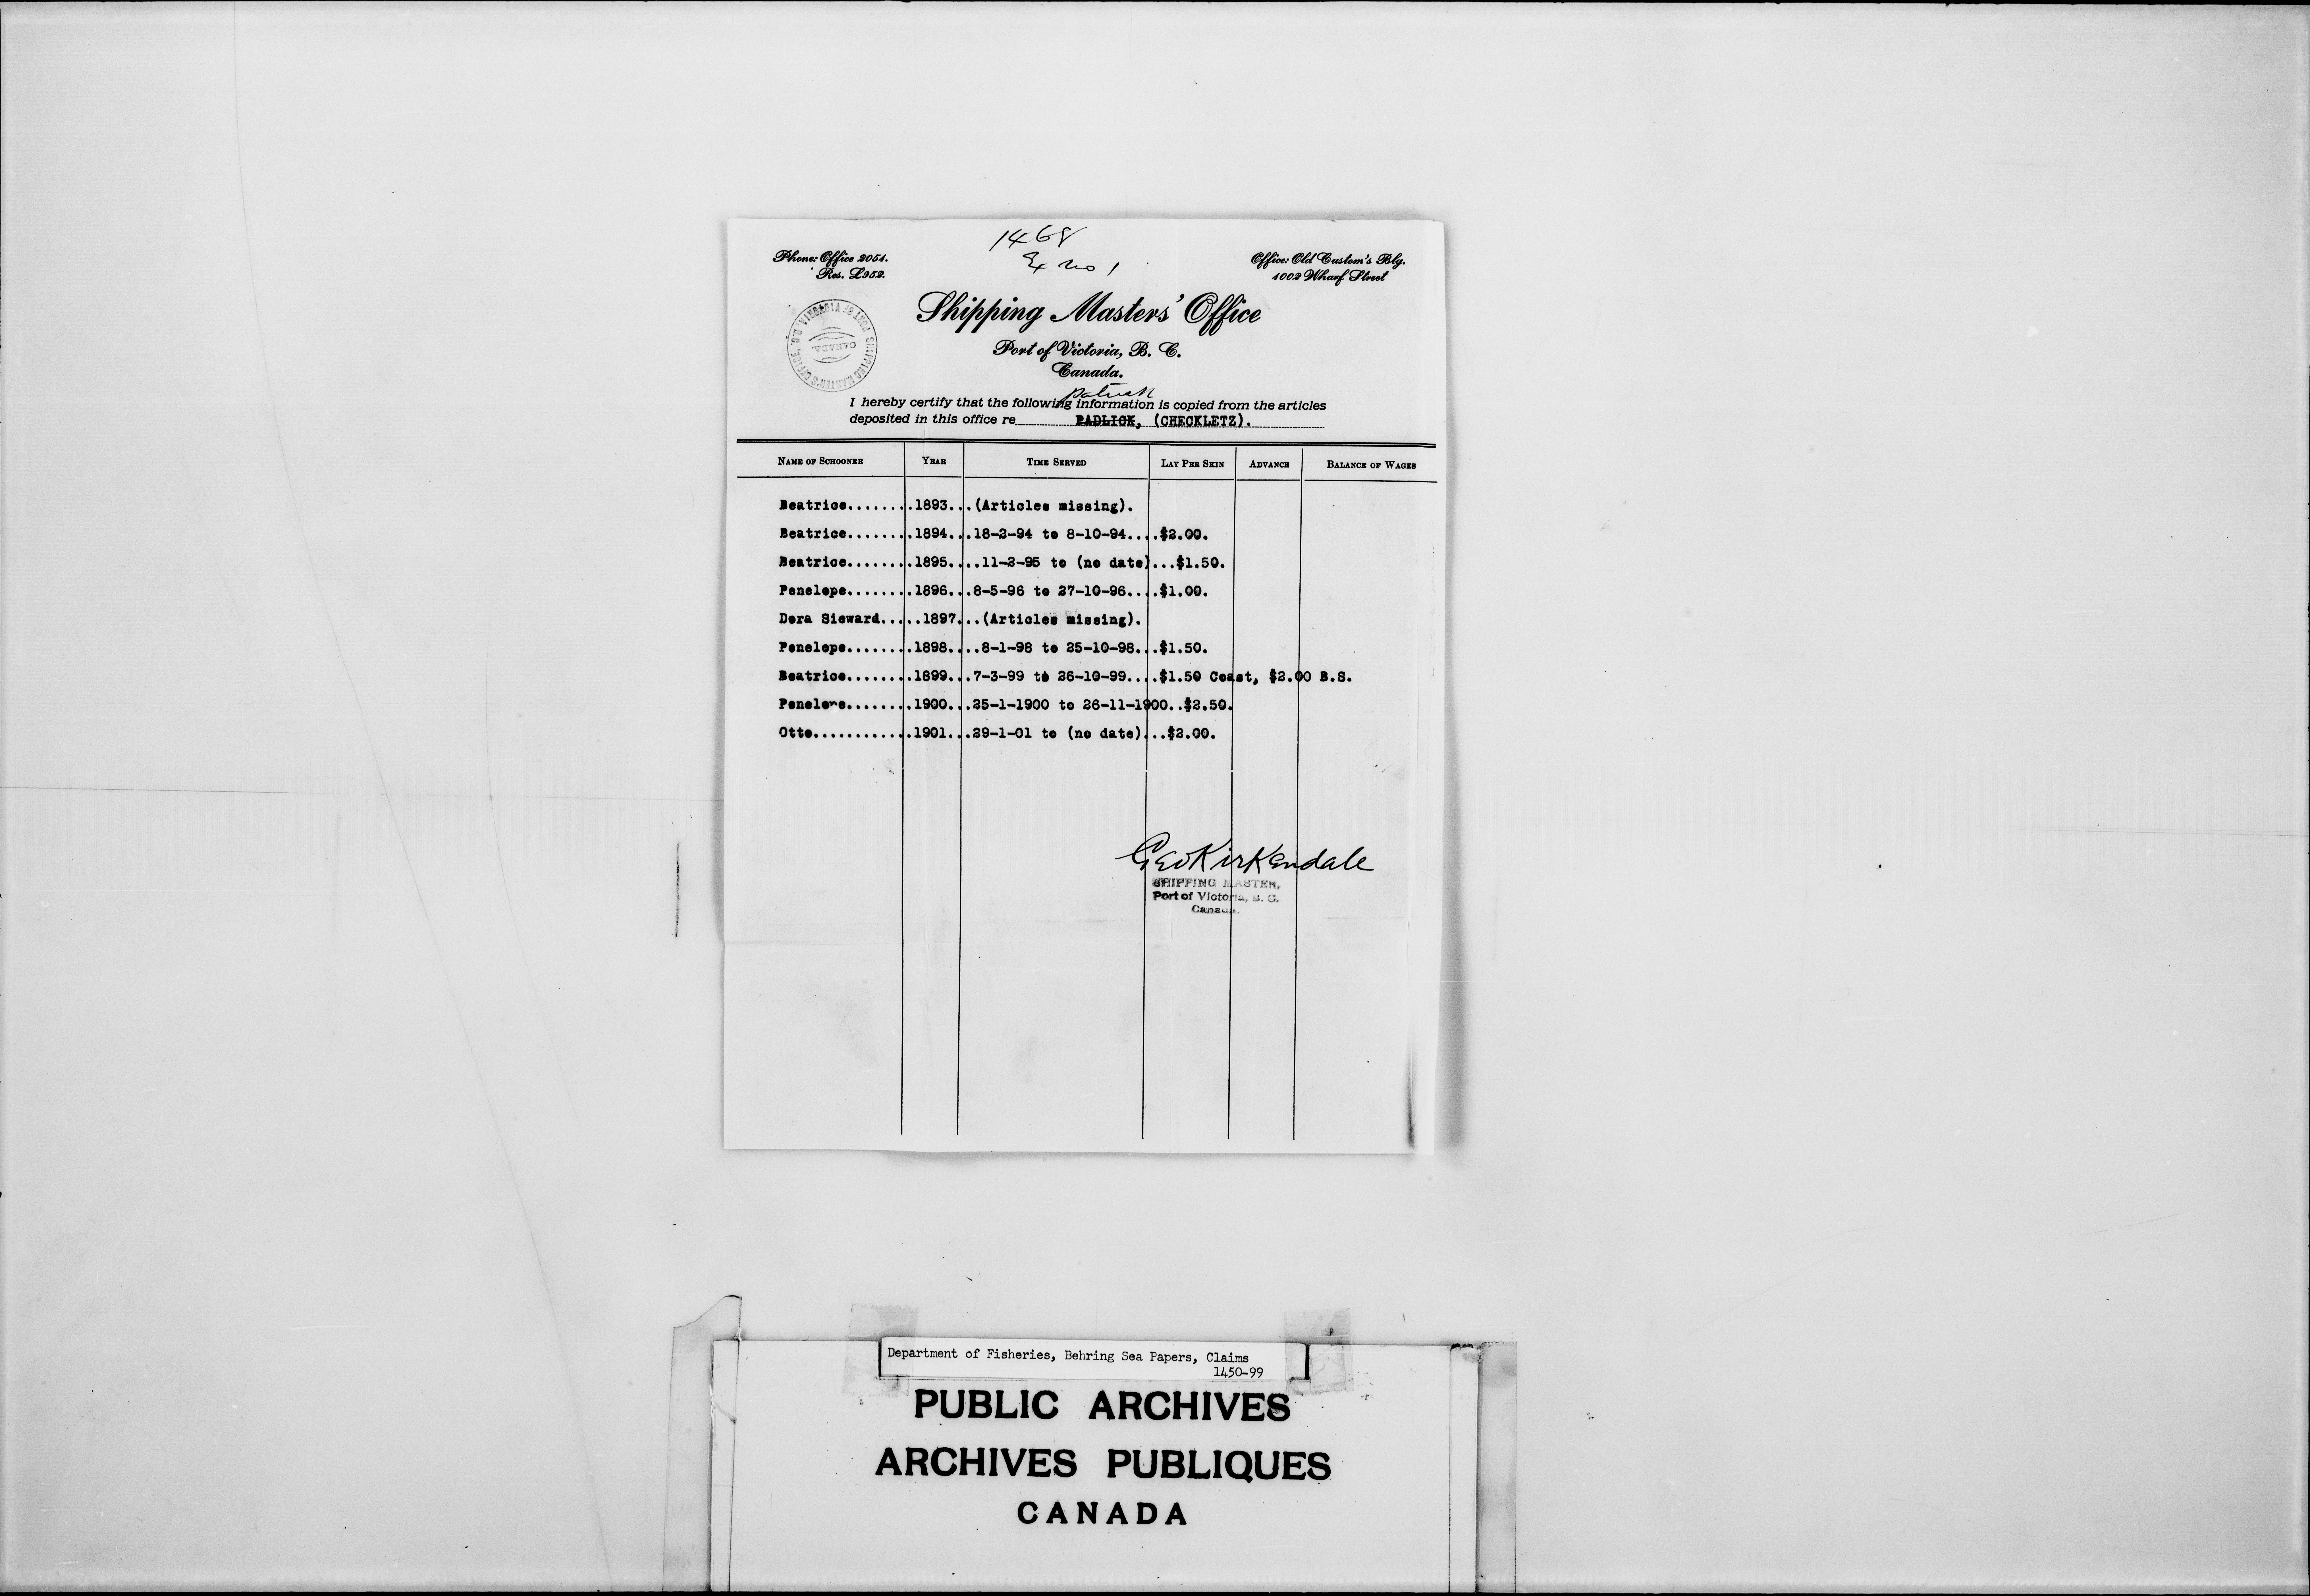 1468
Ex no 1
Phone: Office 2051.
Res. L952.
Office: Old Custom's Blg.
1002 Wharf Street
Shipping Masters' Office
Port of Victoria, B. C.
Canada.
SHIPPING MASTER'S OFFICE PORT OF VICTORIA, B.C.
CANADA
Patrick
I hereby certify that the following information is copied from the articles
deposited in this office re PADLICK, (CHECKLETZ).
NAME OF SCHOONER YEAR TIME SERVED LAY PER SKIN ADVANCE BALANCE OF WAGES
Beatrice........1893...(Articles missing).
Beatrice........1894...18-2-94 to 8-10-94....$2.00.
Beatrice........1895....11-2-95 to (no date)...$1.50.
Penelope........1896...8-5-96 to 27-10-96....$1.00.
Dora Sieward.....1897...(Articles missing).
Penelope........1898....8-1-98 to 25-10-98...$1.50.
Beatrice........1899...7-3-99 to 26-10-99....$1.50 Coast, $2.00 B.S.
Penelope........1900...25-1-1900 to 26-11-1900..$2.50.
Otto............1901...29-1-01 to (no date)...$2.00.
Geo Kirkendale
SHIPPING MASTER,
Port of Victoria, B. C.
Canada.
Department of Fisheries, Behring Sea Papers, Claims
1450-99
PUBLIC ARCHIVES
ARCHIVES PUBLIQUES
CANADA